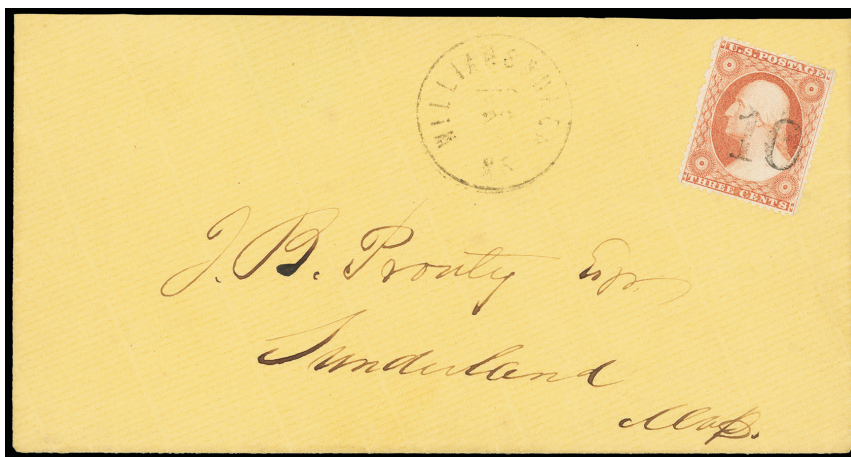 WILLIAMSBURGH
U.S. POSTAGE
10
THREE CENTS
J. B. Prouty Esq.
Sunderland
Mass.